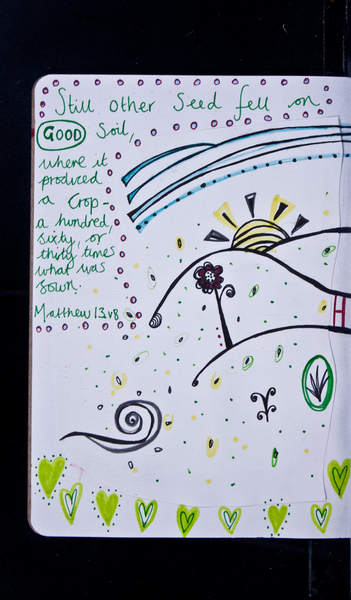 Still other Seed fell on
GOOD Soil,
where it
produced
a Crop -
a hundred,
sixty, or
thirty times
what was
sown.
Matthew 13v8
H